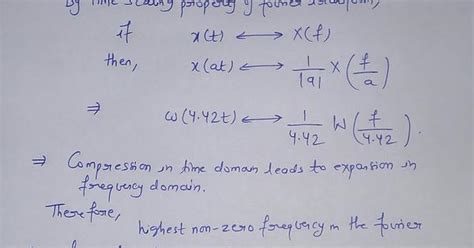 By Time scaling property of fourier transform,
if x(t) ⟷ X(f)
then, x(at) ⟷ 1/|a| X(f/a)
⇒ W(4.42t) ⟷ 1/4.42 W(f/4.42).
⇒ Compression in time domain leads to expansion in
frequency domain.
Therefore,
highest non-zero frequency in the fourier